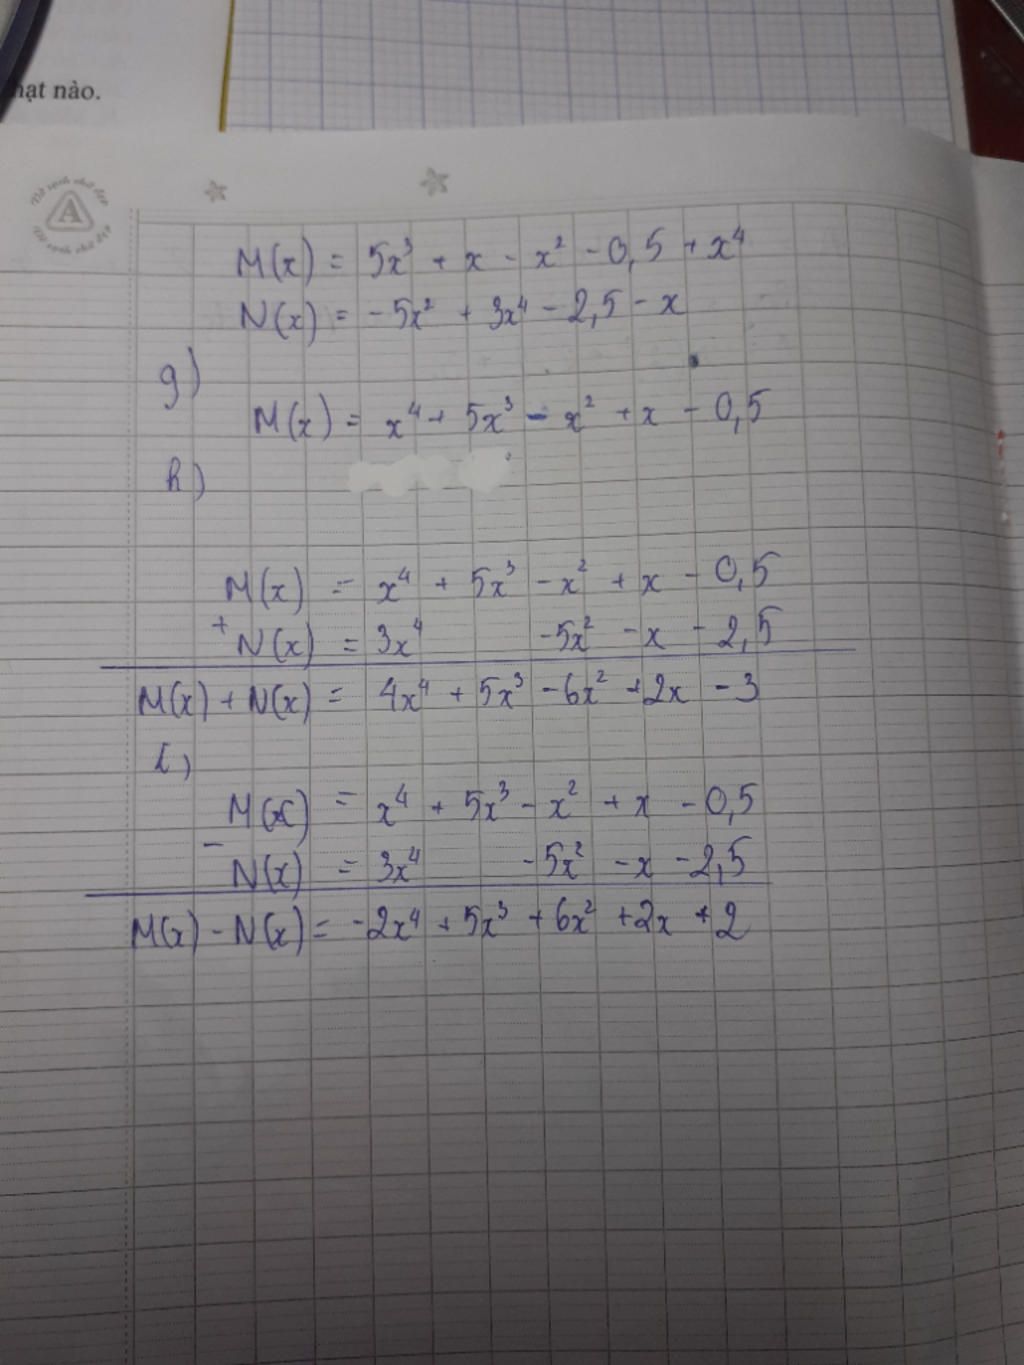 hạt nào.
A
M(x) = 5x³ + x - x² - 0,5 + x⁴
N(x) = - 5x² + 3x⁴ - 2,5 - x
g)
M(x) = x⁴ + 5x³ - x² + x - 0,5
h)
M(x) = x⁴ + 5x³ - x² + x - 0,5
+ N(x) = 3x⁴ -5x² - x - 2,5
M(x) + N(x) = 4x⁴ + 5x³ - 6x² + 2x - 3
i)
M(x) = x⁴ + 5x³ - x² + x - 0,5
- N(x) = 3x⁴ -5x² - x - 2,5
M(x) - N(x) = -2x⁴ + 5x³ + 6x² + 2x + 2